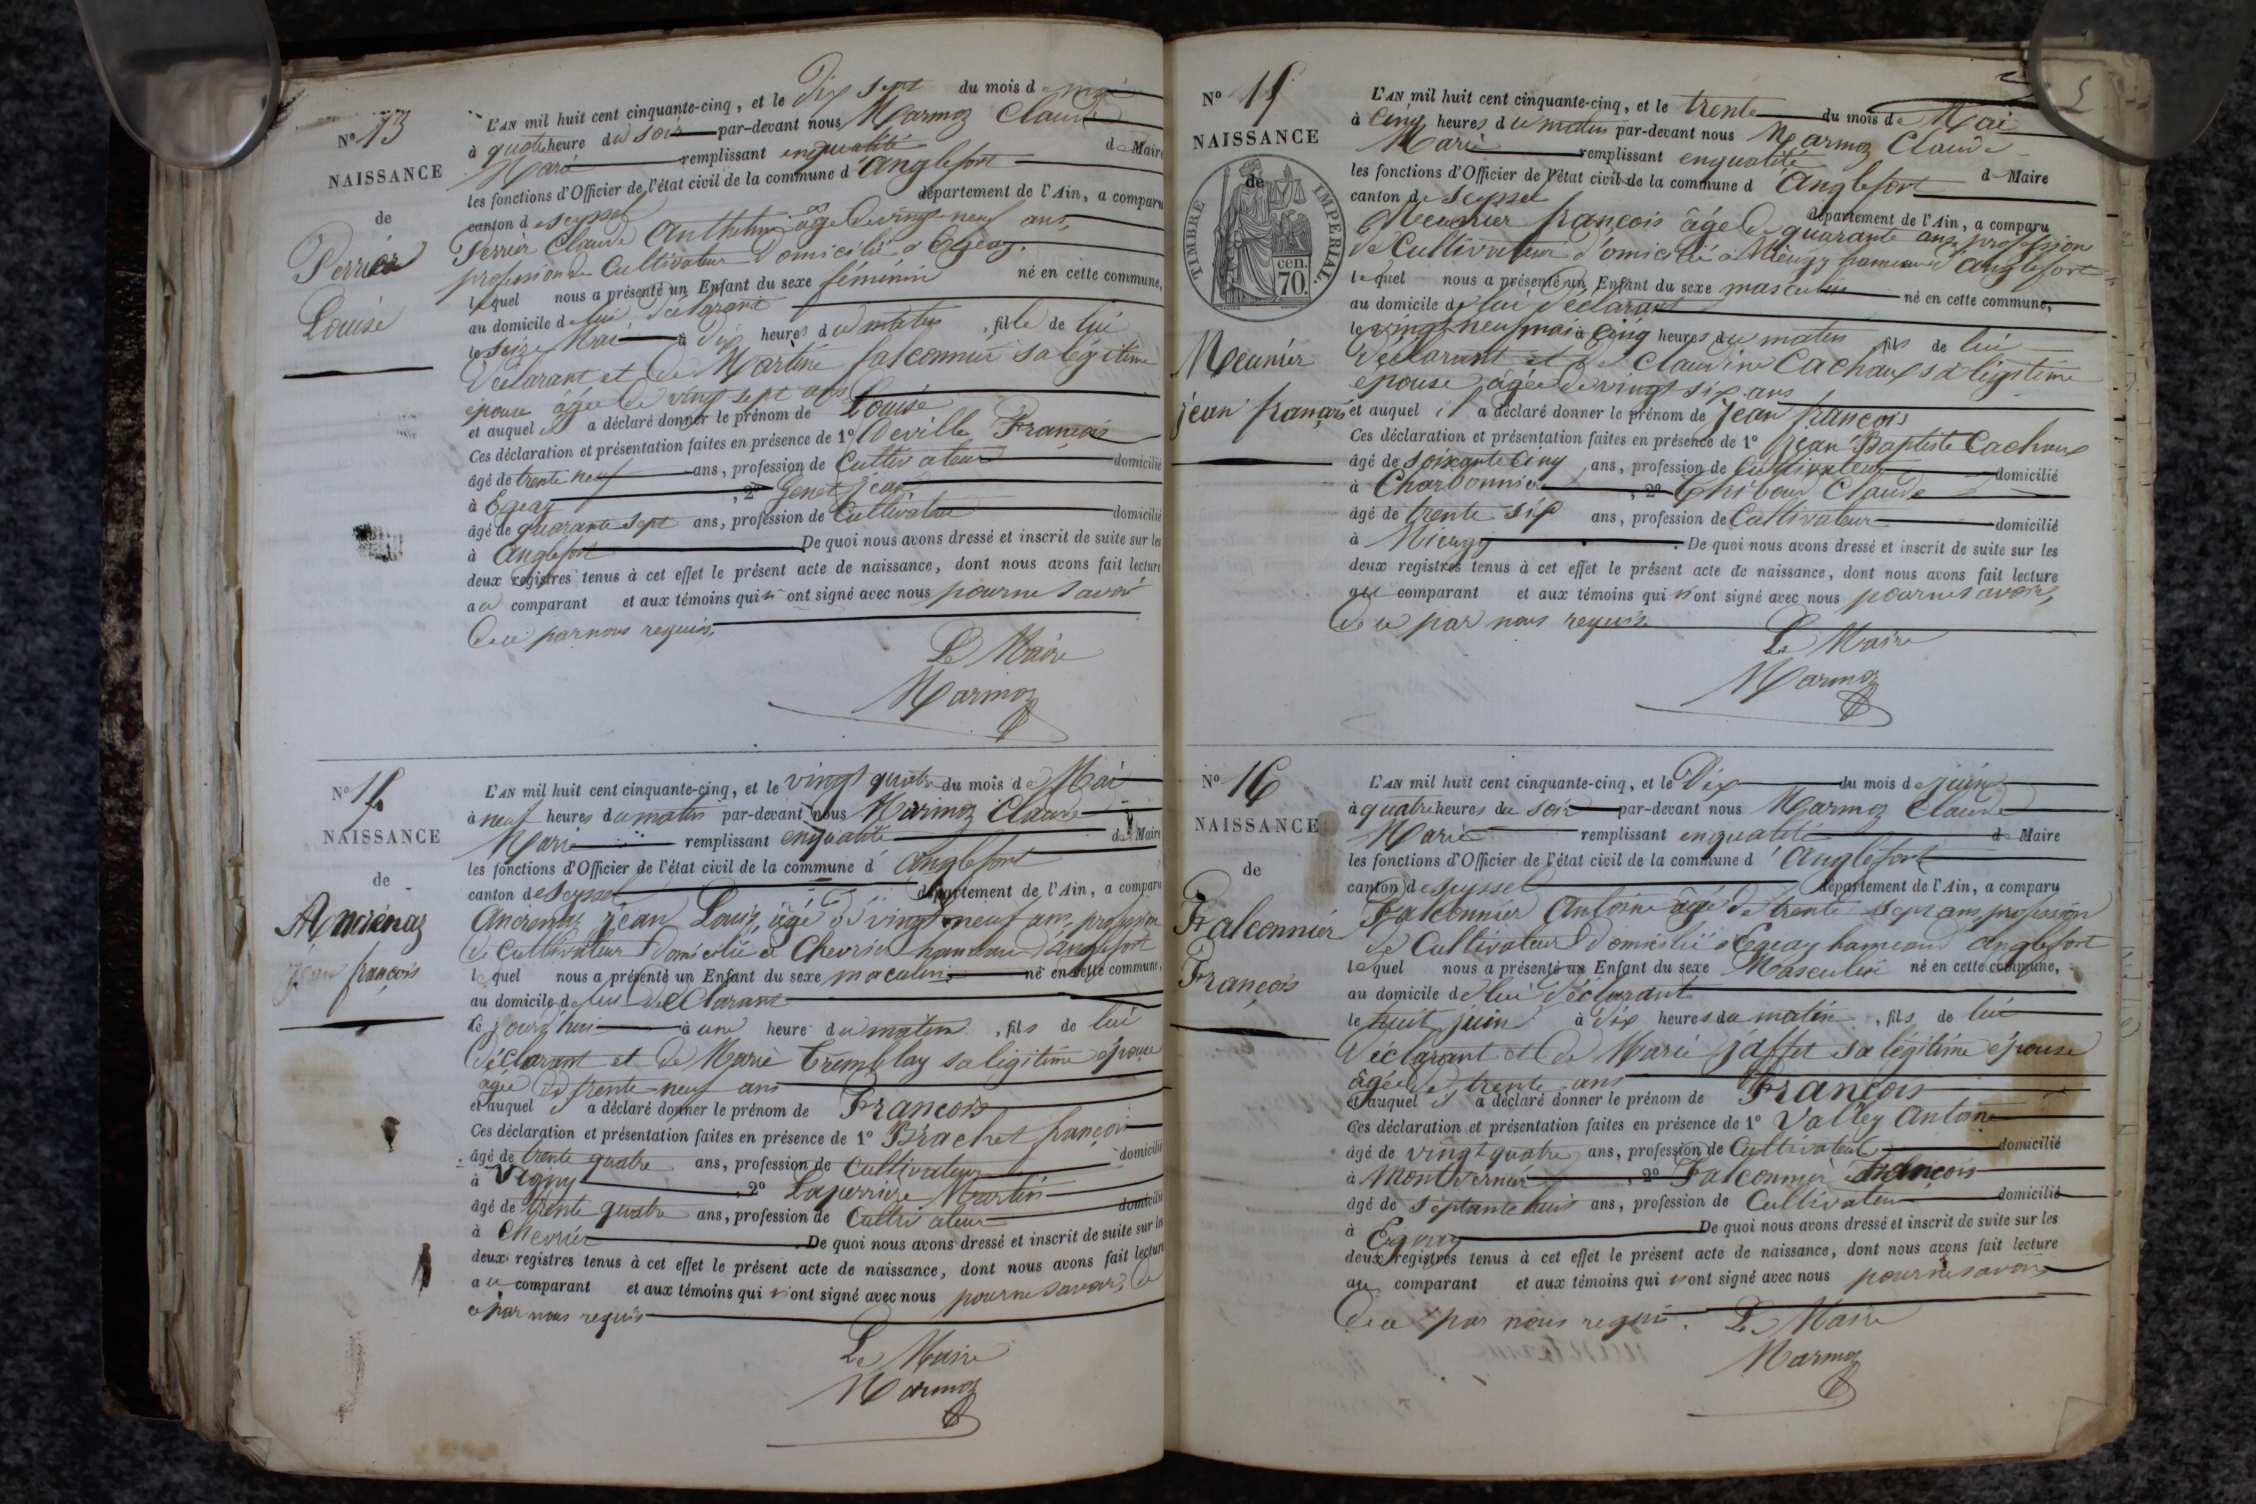 N° 13
NAISSANCE
de
Perrier
Louise
L'AN mil huit cent cinquante-cinq, et le Dix sept du mois de mai
à quatre heure du soir par-devant nous Marmoz Claude
Marie remplissant en qualité de Maire
les fonctions d'Officier de l'état civil de la commune d'Anglefort
canton de Seyssel département de l'Ain, a comparu
Perrier Claude Anthelme âgé de vingt-neuf ans,
profession de Cultivateur domicilié à Egeay.
lequel nous a présenté un Enfant du sexe féminin né en cette commune,
au domicile de lui déclarant
le seize Mai à dix heures du matin, fille de lui
Déclarant et de Martine falconnier sa légitime
épouse âgée de vingt sept ans
et auquel il a déclaré donner le prénom de Louise
Ces déclaration et présentation faites en présence de 1° Deville François
âgé de trente neuf ans, profession de Cultivateur domicilié
à Egeay, 2° Genet Jean
âgé de quarante sept ans, profession de Cultivateur domicilié
à Anglefort De quoi nous avons dressé et inscrit de suite sur les
deux registres tenus à cet effet le présent acte de naissance, dont nous avons fait lecture
au comparant et aux témoins qui n'ont signé avec nous pour ne savoir
de ce par nous requis.
Le Maire
Marmoz
N° 14
NAISSANCE
de
Ancrenaz
Jean françois
L'AN mil huit cent cinquante-cinq, et le vingt quatre du mois de Mai
à neuf heures du matin par-devant nous Marmoz Claude
Marie remplissant en qualité de Maire
les fonctions d'Officier de l'état civil de la commune d'Anglefort
canton de Seyssel département de l'Ain, a comparu
Ancrenaz Jean Louis, âgé de vingt-neuf ans, profession
de Cultivateur domicilié à Chevrier hameau d'anglefort
lequel nous a présenté un Enfant du sexe maculin né en cette commune,
au domicile de lui déclarant
le jourd'hui à une heure du matin, fils de lui
déclarant et de Marie Tremblay sa légitime épouse
âgée de trente-neuf ans
et auquel il a déclaré donner le prénom de François
Ces déclaration et présentation faites en présence de 1° Brachet françois
âgé de trente quatre ans, profession de Cultivateur domicilié
à Vigny, 2° Laperrière Martin
âgé de trente quatre ans, profession de Cultivateur domicilié
à Chevrier De quoi nous avons dressé et inscrit de suite sur les
deux registres tenus à cet effet le présent acte de naissance, dont nous avons fait lecture
au comparant et aux témoins qui n'ont signé avec nous pour ne savoir, de
ce par nous requis
Le Maire
Marmoz
5
N° 15
NAISSANCE
de
TIMBRE IMPERIAL
70 cen.
Meunier
jean françois
L'AN mil huit cent cinquante-cinq, et le trente du mois de Mai
à Cinq heures du matin par-devant nous Marmoz Claude
Marie remplissant en qualité de Maire
les fonctions d'Officier de l'état civil de la commune d'Anglefort
canton de Seyssel département de l'Ain, a comparu
Meunier françois âgé de quarante ans profession
de Cultivateur domicilié à Mieugy hameau d'anglefort
lequel nous a présenté un Enfant du sexe masculin né en cette commune,
au domicile de lui déclarant
le vingt neuf mai à Cinq heures du matin, fils de lui
déclarant et de Claudine Cachoux sa légitime
épouse, âgée de vingt six ans
et auquel il a déclaré donner le prénom de Jean françois
Ces déclaration et présentation faites en présence de 1° Jean Baptiste Cachoux
âgé de soixante Cinq ans, profession de Cultivateur domicilié
à Charbonnier, 2° Chiboud Claude
âgé de trente six ans, profession de Cultivateur domicilié
à Mieugy. De quoi nous avons dressé et inscrit de suite sur les
deux registres tenus à cet effet le présent acte de naissance, dont nous avons fait lecture
au comparant et aux témoins qui n'ont signé avec nous pour ne savoir,
de ce par nous requis
Le Maire
Marmoz
N° 16
NAISSANCE
de
Falconnier
François
L'AN mil huit cent cinquante-cinq, et le Dix du mois de juin
à quatre heures du soir par-devant nous Marmoz Claude
Marie remplissant en qualité de Maire
les fonctions d'Officier de l'état civil de la commune d'Anglefort
canton de Seyssel département de l'Ain, a comparu
Falconnier Antoine âgé de trente sept ans profession
de Cultivateur domicilié à Egeay hameau d'anglefort
lequel nous a présenté un Enfant du sexe Masculin né en cette commune,
au domicile de lui déclarant
le huit juin à dix heures du matin, fils de lui
Déclarant et de Marie jaffet sa légitime épouse
âgée de trente ans
et auquel il a déclaré donner le prénom de François
Ces déclaration et présentation faites en présence de 1° Valley Antoine
âgé de vingt quatre ans, profession de Cultivateur domicilié
à Montvernier, 2° Falconnier François
âgé de septante huit ans, profession de Cultivateur domicilié
à Egeay De quoi nous avons dressé et inscrit de suite sur les
deux registres tenus à cet effet le présent acte de naissance, dont nous avons fait lecture
au comparant et aux témoins qui n'ont signé avec nous pour ne savoir
de ce par nous requis. Le Maire
Marmoz